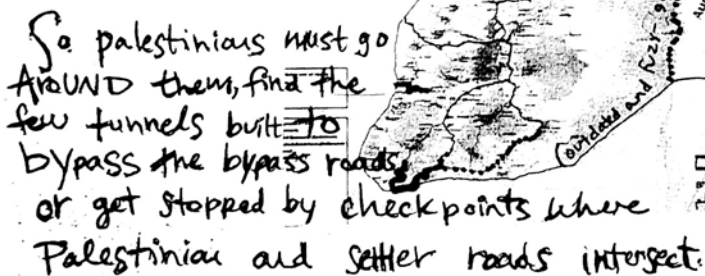 So palestinians must go
AROUND them, find the
few tunnels built to
bypass the bypass roads,
or get stopped by checkpoints where
Palestinian and settler roads intersect.
outdated and fuzzy